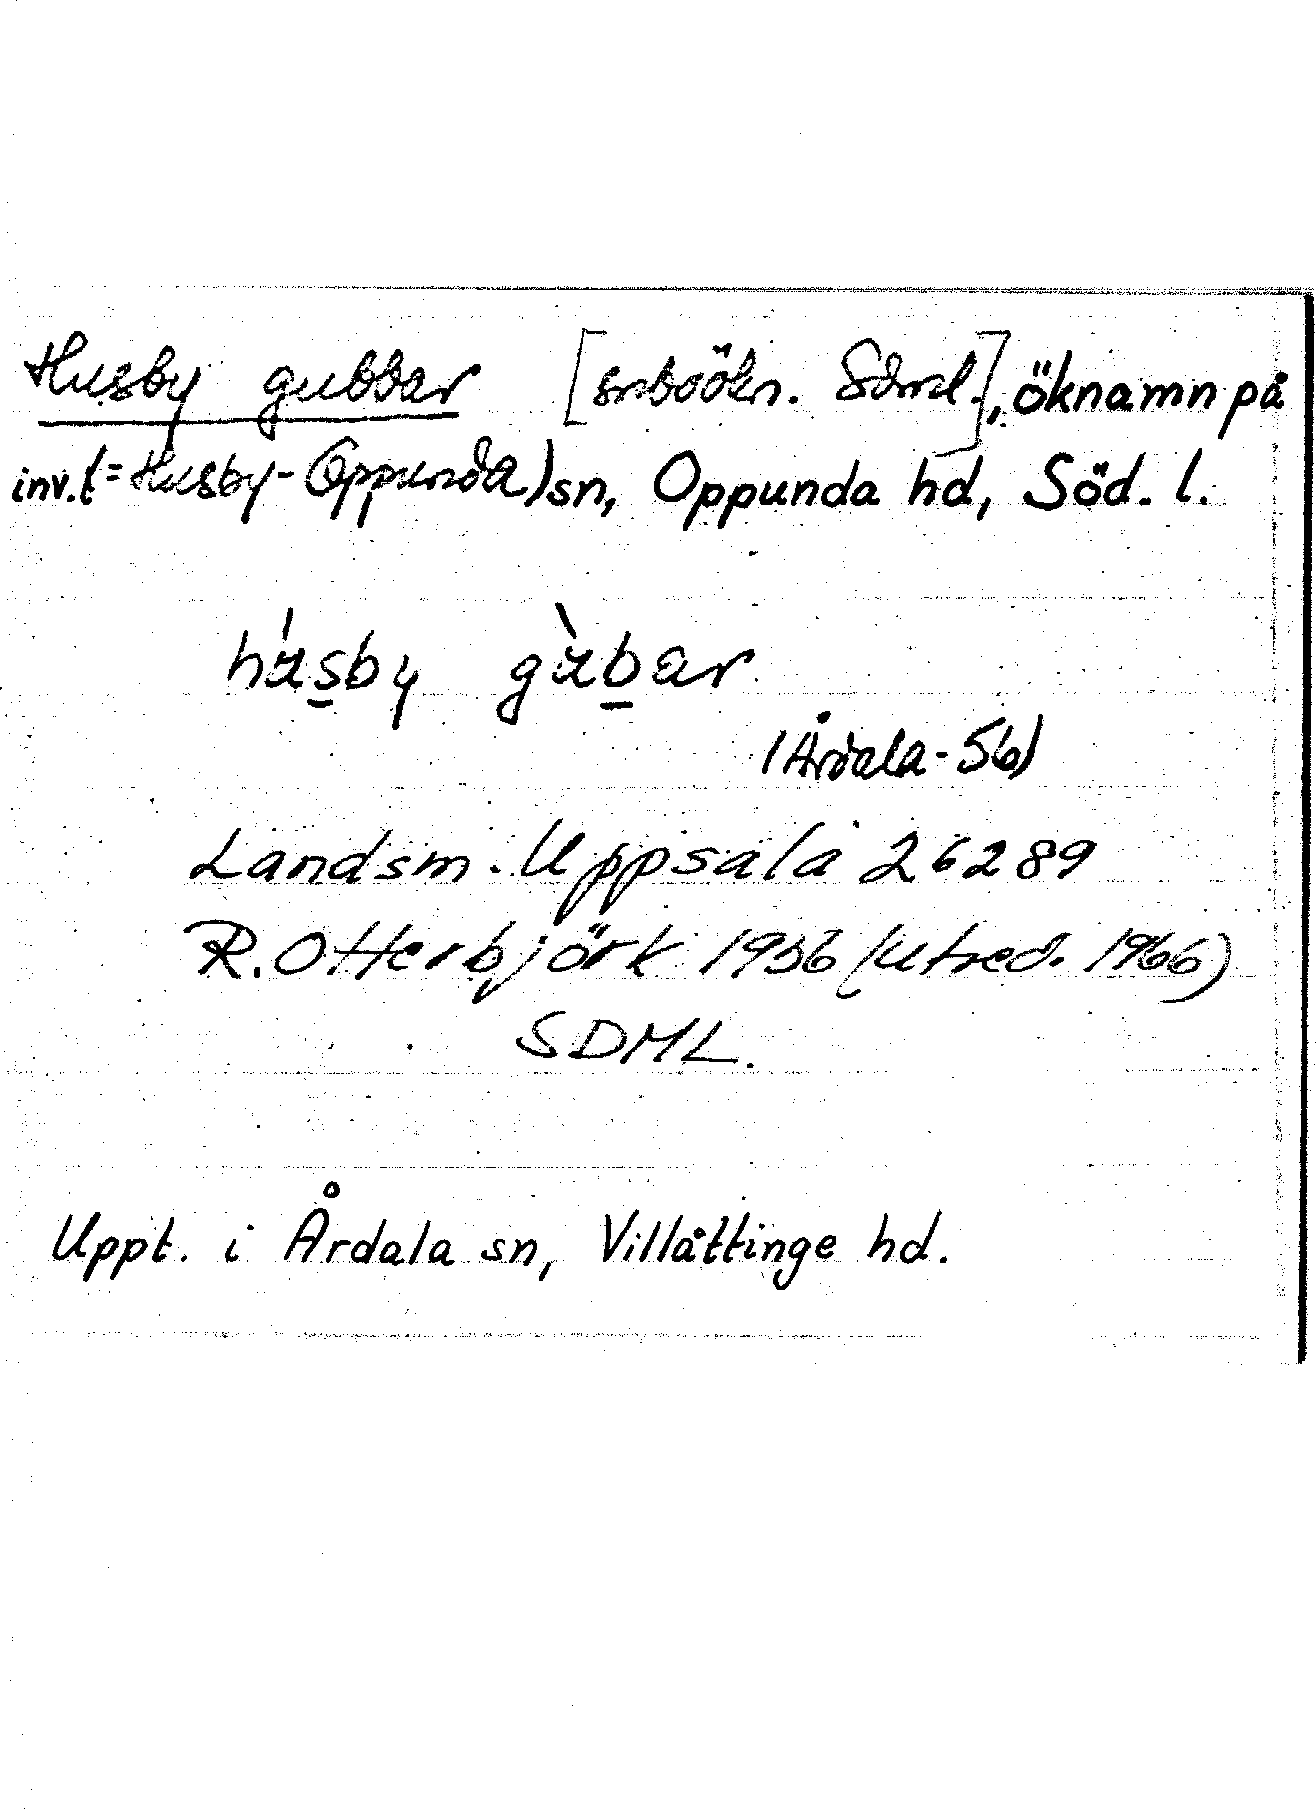 Husby gubbar [snboökn. Sdml.], öknamn på
inv. (= Husby-Oppunda) sn, Oppunda hd, Söd. l.
húsby gùbar
(Årdala - 56)
Landsm. Uppsala 26289
R. Otterbjörk 1956 (utred. 1966)
SDML.
Uppt. i Årdala sn, Villåttinge hd.